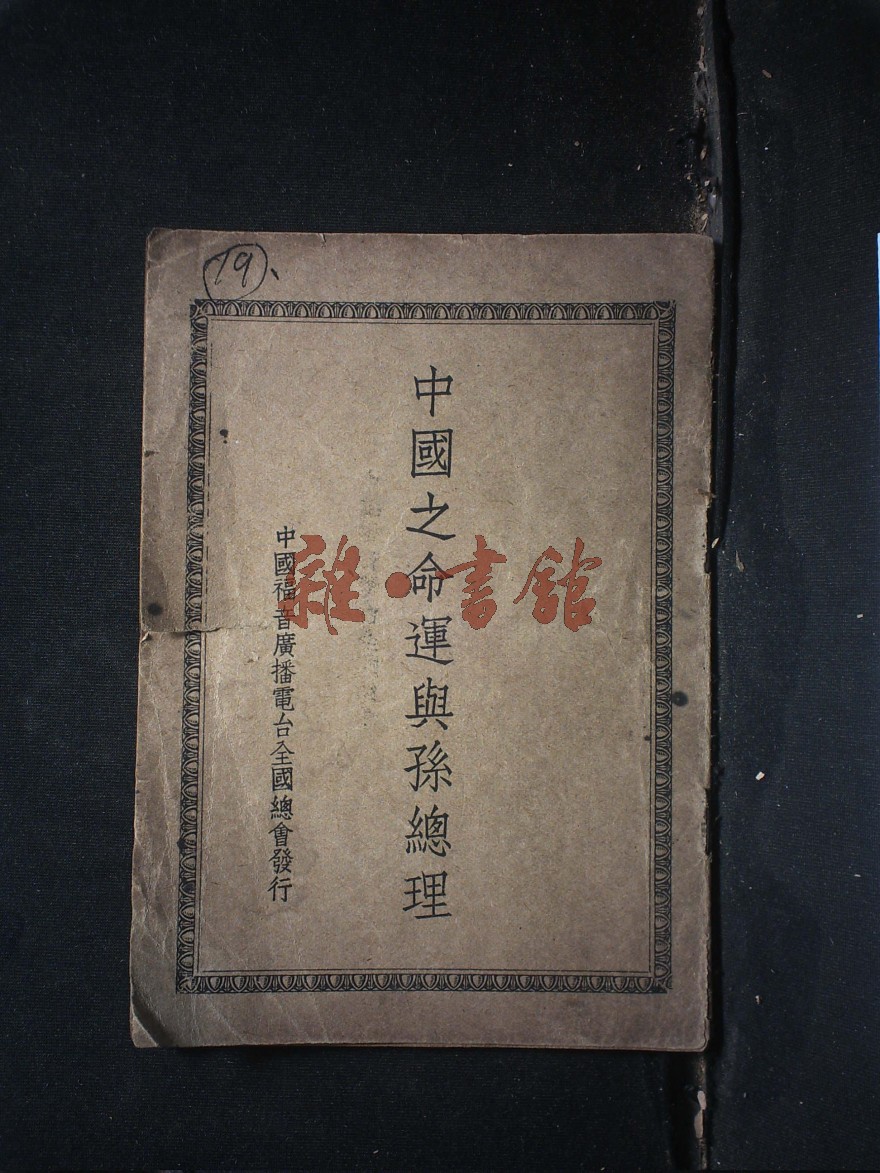 19、
中國之命運與孫總理
中國福音廣播電台全國總會發行
雜·書館